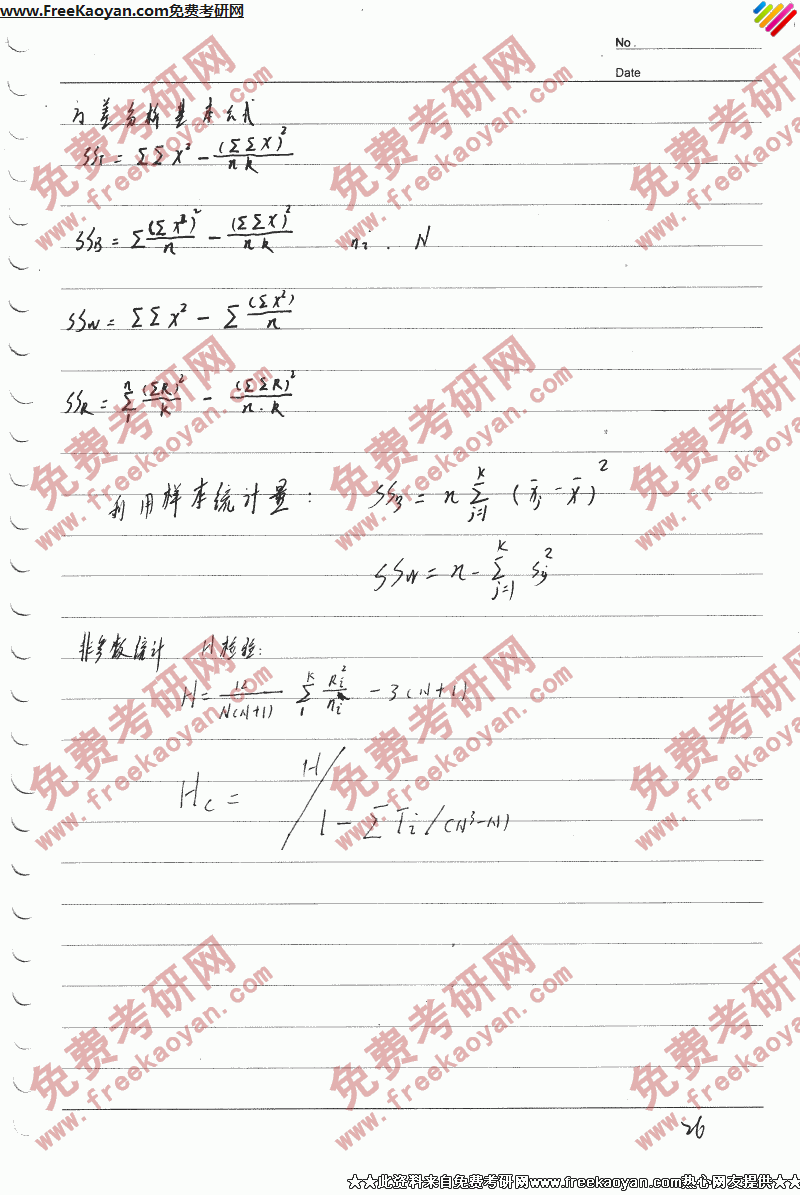 www.FreeKaoyan.com免费考研网
No.
Date
方差分析基本公式
SS_T = ΣΣX² - (ΣΣX)²/nk
SS_B = Σ(ΣX)²/n - (ΣΣX)²/nk n_i . N
SS_W = ΣΣX² - Σ(ΣX²)/n
SS_R = Σ₁ⁿ (ΣR)²/k - (ΣΣR)²/n·k
利用样本统计量: SS_B = n Σ_{j=1}^{K} (x̄_j - x̄)²
SS_W = n - Σ_{j=1}^{K} s_j²
非参数统计 H检验:
H = 12/N(N+1) Σ₁ᴷ R_i²/n_i - 3(N+1)
H_C = H / 1 - ΣT_i/(N³-N)
26
★★此资料来自免费考研网www.freekaoyan.com热心网友提供★★
免费考研网
www.freekaoyan.com